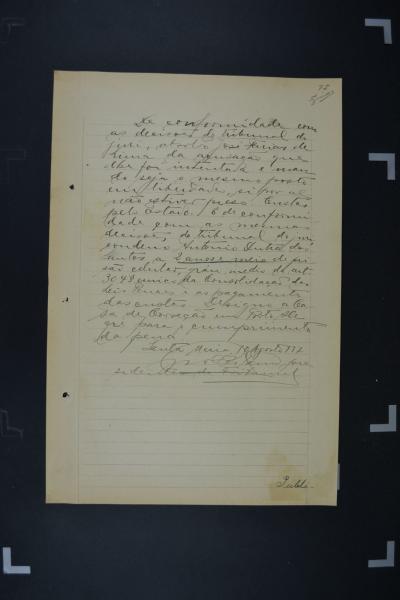 75
De conformidade com
as decisões do tribunal do
jury, absolvo José Farias de
Lima da accusação que
lhe foi intentada e man-
do seja o mesmo posto
em liberdade, si por al
não estiver preso. Custas
pelo Estado. E de conformi-
dade com as mesmas
decisões, do tribunal do jury,
condemno Antonio Dutra dos
Santos a 2 annos e meio de pri-
são cellular, grau medio do art.
304 § unico da Consolidação das
Leis Penaes e ao pagamento
das custas. Designo a Ca-
sa de Correcção em Porto Ale-
gre para o cumprimento
da pena.
Santa Maria, Agosto 937
pre-
sidente do Tribunal
Publi-